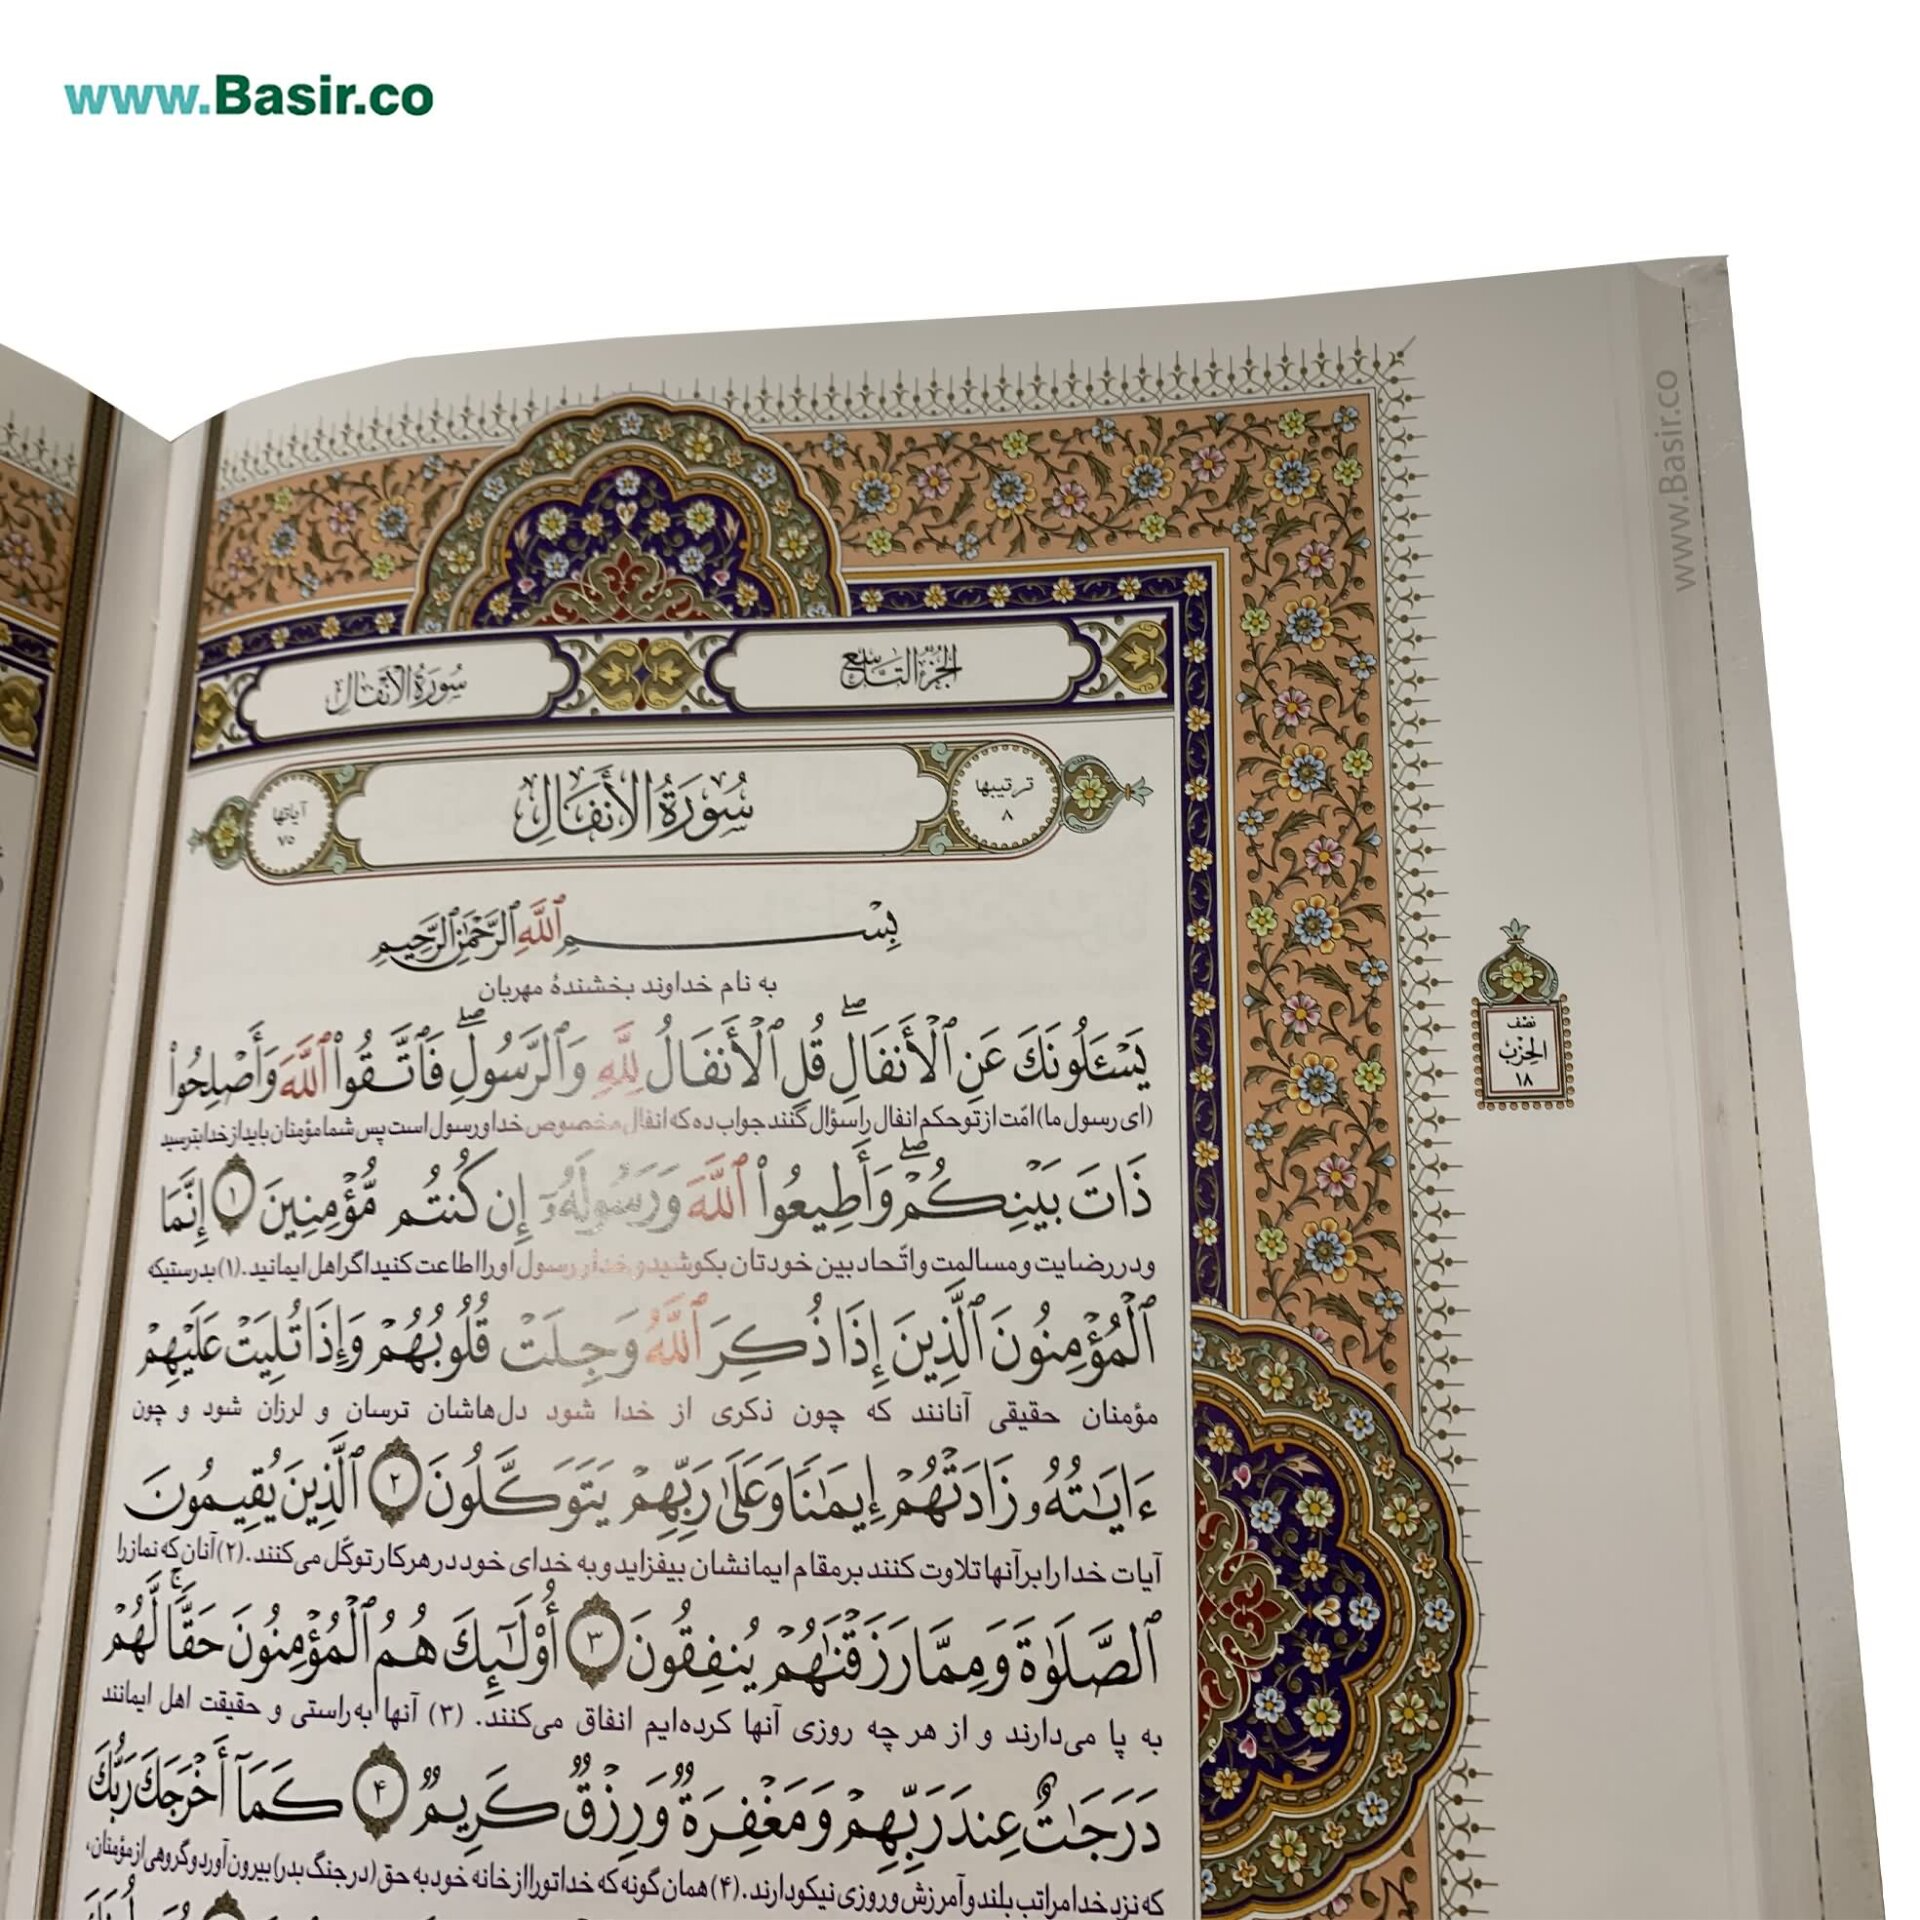 www.Basir.co
www.Basir.co
الجزء التاسع
سورة الأنفال
ترتیبها
۸
سُورَةُ الأَنفَالِ
آیاتها
۷۵
بِسْمِ ٱللَّهِ ٱلرَّحْمَٰنِ ٱلرَّحِيمِ
به نام خداوند بخشندهٔ مهربان
يَسْـَٔلُونَكَ عَنِ ٱلْأَنفَالِۖ قُلِ ٱلْأَنفَالُ لِلَّهِ وَٱلرَّسُولِۖ فَٱتَّقُوا۟ ٱللَّهَ وَأَصْلِحُوا۟
(ای رسول ما) امّت از تو حکم انفال را سؤال کنند جواب ده که انفال مخصوص خدا و رسول است پس شما مؤمنان باید از خدا بترسید
ذَاتَ بَيْنِكُمْۖ وَأَطِيعُوا۟ ٱللَّهَ وَرَسُولَهُۥٓ إِن كُنتُم مُّؤْمِنِينَ ۱ إِنَّمَا
و در رضایت و مسالمت و اتّحاد بین خودتان بکوشید و خدا و رسول او را اطاعت کنید اگر اهل ایمانید. (۱) بدرستیکه
ٱلْمُؤْمِنُونَ ٱلَّذِينَ إِذَا ذُكِرَ ٱللَّهُ وَجِلَتْ قُلُوبُهُمْ وَإِذَا تُلِيَتْ عَلَيْهِمْ
مؤمنان حقیقی آنانند که چون ذکری از خدا شود دل‌هاشان ترسان و لرزان شود و چون
ءَايَٰتُهُۥ زَادَتْهُمْ إِيمَٰنًا وَعَلَىٰ رَبِّهِمْ يَتَوَكَّلُونَ ۲ ٱلَّذِينَ يُقِيمُونَ
آیات خدا را بر آنها تلاوت کنند بر مقام ایمانشان بیفزاید و به خدای خود در هر کار توکّل می‌کنند. (۲) آنان که نماز را
ٱلصَّلَوٰةَ وَمِمَّا رَزَقْنَٰهُمْ يُنفِقُونَ ۳ أُو۟لَٰٓئِكَ هُمُ ٱلْمُؤْمِنُونَ حَقًّاۚ لَّهُمْ
به پا می‌دارند و از هر چه روزی آنها کرده‌ایم انفاق می‌کنند. (۳) آنها به راستی و حقیقت اهل ایمانند
دَرَجَٰتٌ عِندَ رَبِّهِمْ وَمَغْفِرَةٌ وَرِزْقٌ كَرِيمٌ ۴ كَمَآ أَخْرَجَكَ رَبُّكَ
که نزد خدا مراتب بلند و آمرزش و روزی نیکو دارند. (۴) همان گونه که خدا تو را از خانه خود به حق (در جنگ بدر) بیرون آورد و گروهی از مؤمنان،
نصف
الحزب
۱۸